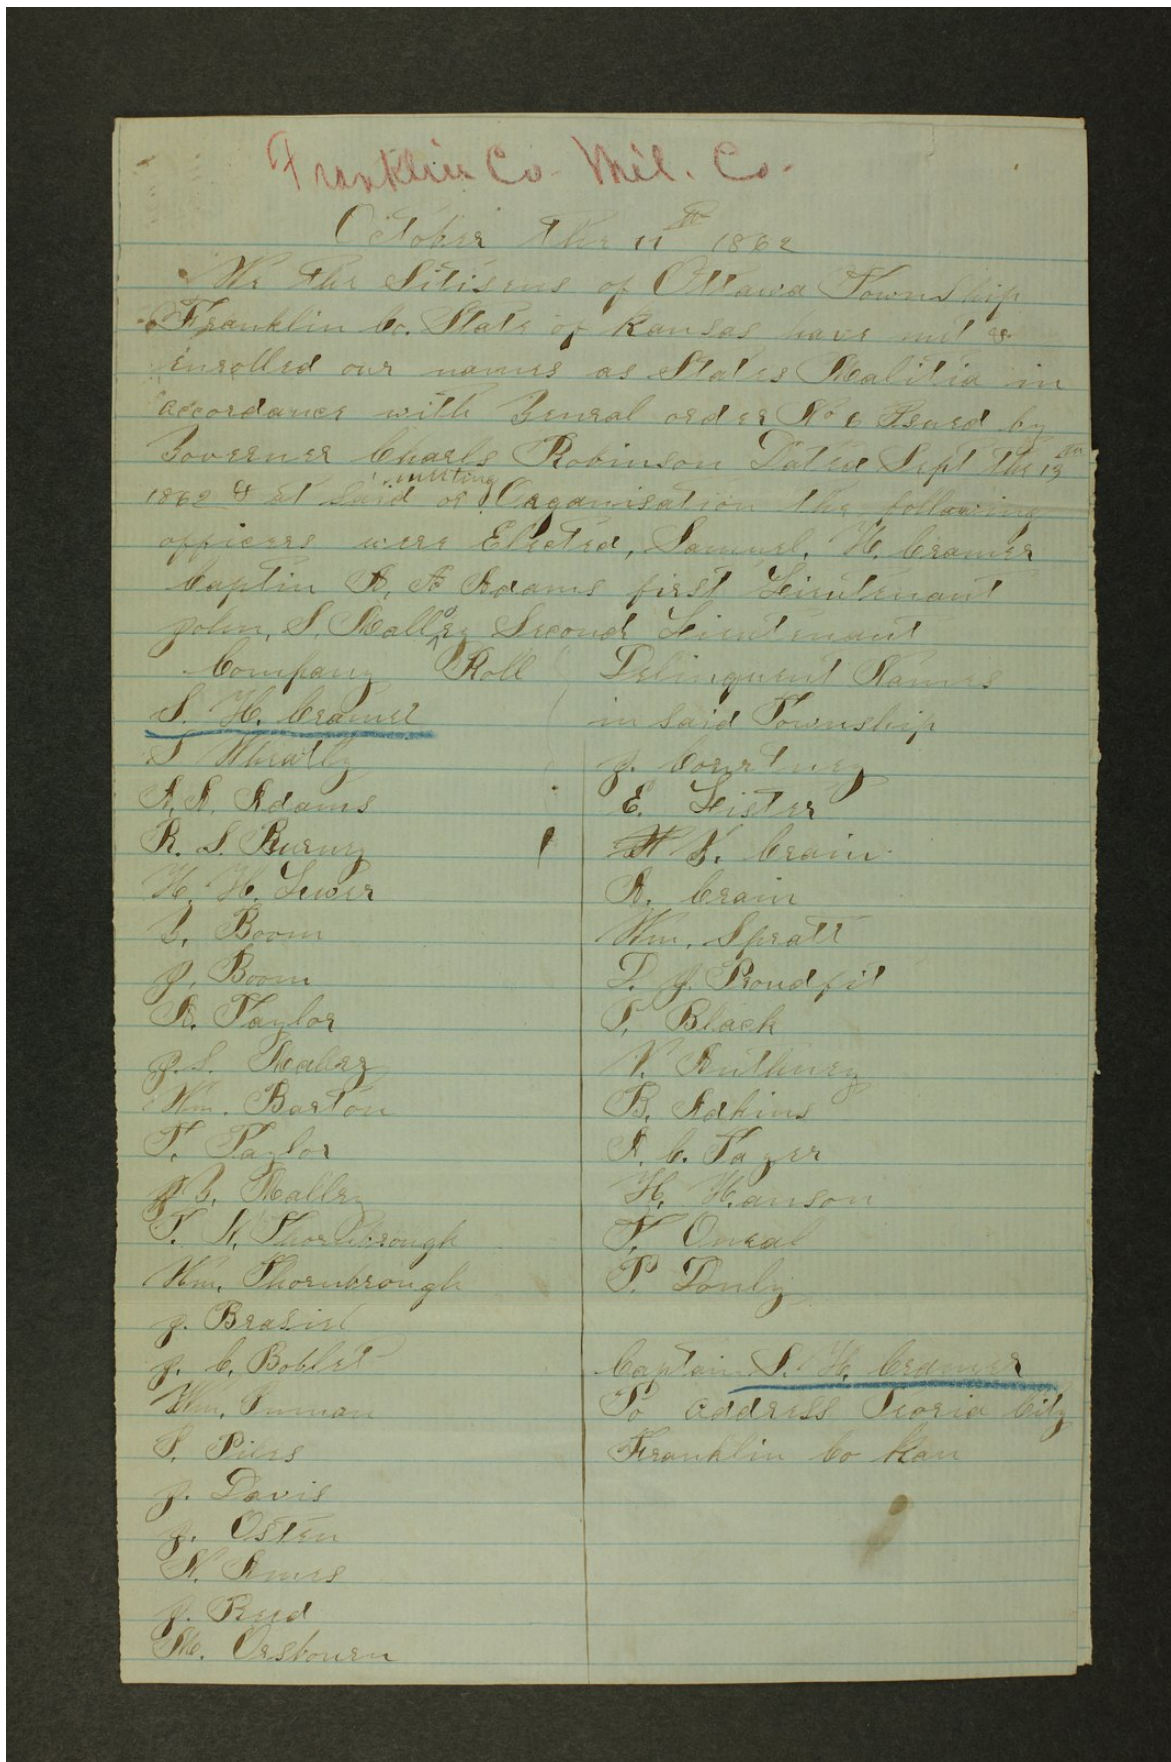 Franklin Co. Mil. Co.
October the 11th 1862
We the Sitisens of Ottawa Township
Franklin Co. State of Kansas have met &
enrolled our names as States Malitia in
accordance with Genral order No 6 Isued by
Governer Charls Robinson Dated Sept the 13th
1862 & at said meeting or Organisation the following
officers were Elected, Samuel, H. Cramer
Captin A, A Adams first Lieutenant
John, S. Mallory Second Lieutenant
Company Roll
S. H. Cramer
S Wheatly
A, A, Adams
R. S. Burney
H. H. Sewer
Boom
J, Boom
A. Taylor
J. S.
Wm. Barton
T. Taylor
Mallery
T. N, Thornbrough
Wm, Thornbrough
J. Brasiel
J. C. Boblet
Wm, Inman
S. Piles
J. Davis
J. Osten
Ames
J. Reed
M. Orsbourn
Delinquent Names
in said Township
J. Courtney
E. Lister
Crain
A. Crain
Wm, Spratt
D. J. Proudfit
T. Black
V.
B, Adkins
A. C. Tayer
H, Hanson
T, Oneal
P. Donly
Captain S. H. Cramer
To address Peoria City
Franklin Co Kan